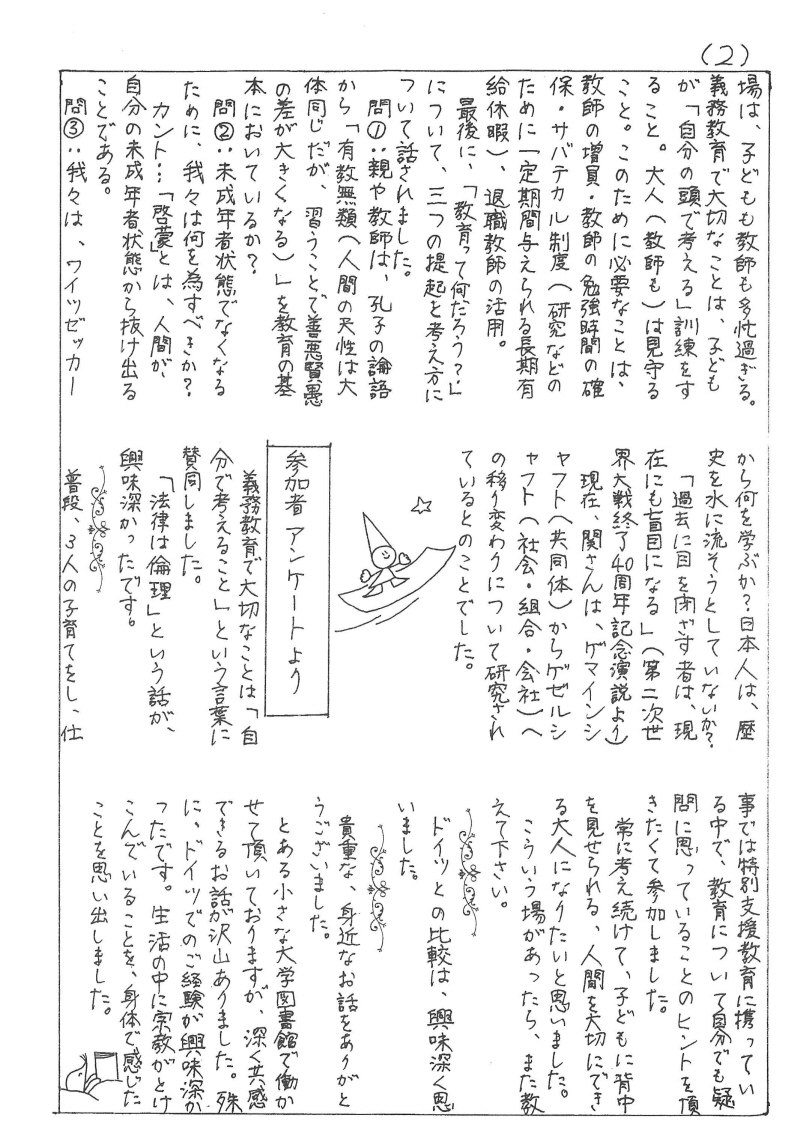 (2)
場は、子どもも教師も多忙過ぎる。
義務教育で大切なことは、子ども
が「自分の頭で考える」訓練をす
ること。大人(教師も)は見守る
こと。このために必要なことは、
教師の増員・教師の勉強時間の確
保・サバテカル制度(研究などの
ために一定期間与えられる長期有
給休暇)、退職教師の活用。
最後に、「教育って何だろう?」
について、三つの提起と考え方に
ついて話されました。
問①:親や教師は、孔子の論語
から「有数無類(人間の天性は大
体同じだが、習うことで善悪賢愚
の差が大きくなる)」を教育の基
本においているか?
問②:未成年者状態でなくなる
ために、我々は何を為すべきか?
カント:「啓蒙」とは、人間が、
自分の未成年者状態から抜け出る
ことである。
問③:我々は、ワイツゼッカー
から何を学ぶか?日本人は、歴
史を水に流そうとしていないか?
「過去に目を閉ざす者は、現
在にも盲目になる」(第二次世
界大戦終了40周年記念演説より)
現在、関さんは、ゲマインシ
ャフト(共同体)からゲゼルシ
ャフト(社会・組合・会社)へ
の移り変わりについて研究され
ているとのことでした。
参加者アンケートより
義務教育で大切なことは「自
分で考えること」という言葉に
賛同しました。
「法律は倫理」という話が、
興味深かったです。
普段、3人の子育てをし、仕
事では特別支援教育に携ってい
る中で、教育について自分でも疑
問に思っていることのヒントを頂
きたくて参加しました。
常に考え続けて、子どもに背中
を見せられる、人間を大切にでき
る大人になりたいと思いました。
こういう場があったら、また教
えて下さい。
ドイツとの比較は、興味深く思
いました。
貴重な、身近なお話をありがと
うございました。
とある小さな大学図書館で働か
せて頂いておりますが、深く共感
できるお話が沢山ありました。殊
に、ドイツでのご経験が興味深か
ったです。生活の中に宗教がとけ
こんでいることを、身体で感じた
ことを思い出しました。